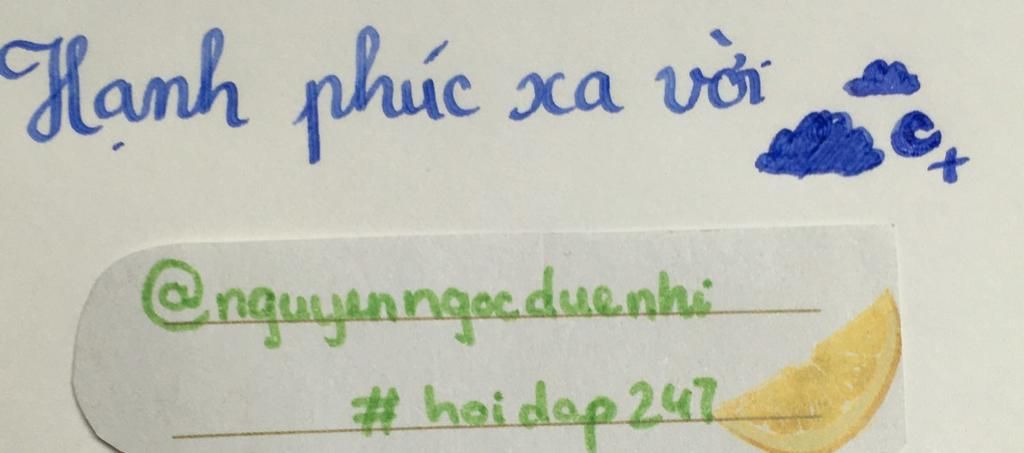 Hạnh phúc xa vời
@nguyenngocduenhi
#hoidap247